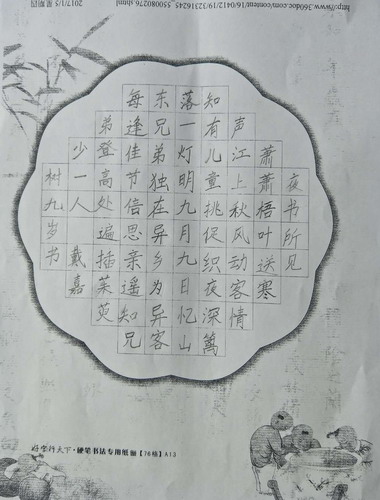 http://www.360doc.com/content/16/0412/19/32316245_550080276.shtml
2017/1/5 星期四
夜书所见
萧萧梧叶送寒
声江上秋风动客情
知有儿童挑促织夜深篱
落一灯明九月九日忆山
东兄弟独在异乡为异客
每逢佳节倍思亲遥知兄
弟登高处遍插茱萸
少一人戴嘉
树九岁书
好字行天下·硬笔书法专用纸【76格】A13